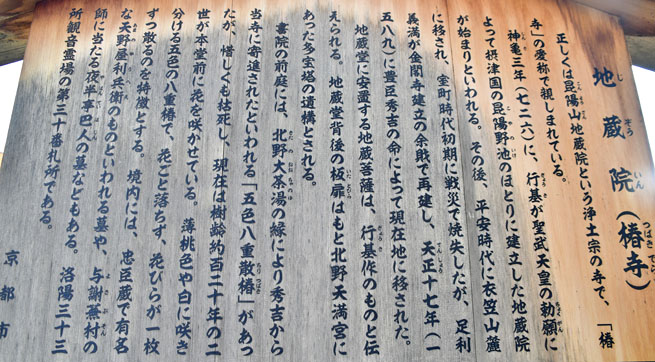 地蔵院（椿寺）
じ ぞう いん つばき でら
正しくは昆陽山地蔵院という浄土宗の寺で、「椿
寺」の愛称で親しまれている。
神亀三年（七二六）に、行基が聖武天皇の勅願に
よって摂津国の昆陽野池のほとりに建立した地蔵院
が始まりといわれる。その後、平安時代に衣笠山麓
に移され、室町時代初期に戦災で焼失したが、足利
義満が金閣寺建立の余財で再建し、天正十七年（一
五八九）に豊臣秀吉の命によって現在地に移された。
地蔵堂に安置する地蔵菩薩は、行基作のものと伝
えられる。地蔵堂背後の板扉はもと北野天満宮に
あった多宝塔の遺構とされる。
書院の前庭には、北野大茶湯の縁により秀吉から
当寺に寄進されたといわれる「五色八重散椿」があっ
たが、惜しくも枯死し、現在は樹齢約百二十年の二
世が本堂前に花を咲かせている。薄桃色や白に咲き
分ける五色の八重椿で、花ごと落ちず、花びらが一枚
ずつ散るのを特徴とする。境内には、忠臣蔵で有名
な天野屋利兵衛のものといわれる墓や、与謝蕪村の
師に当たる夜半亭巴人の墓などもある。洛陽三十三
所観音霊場の第三十番札所である。
京都市